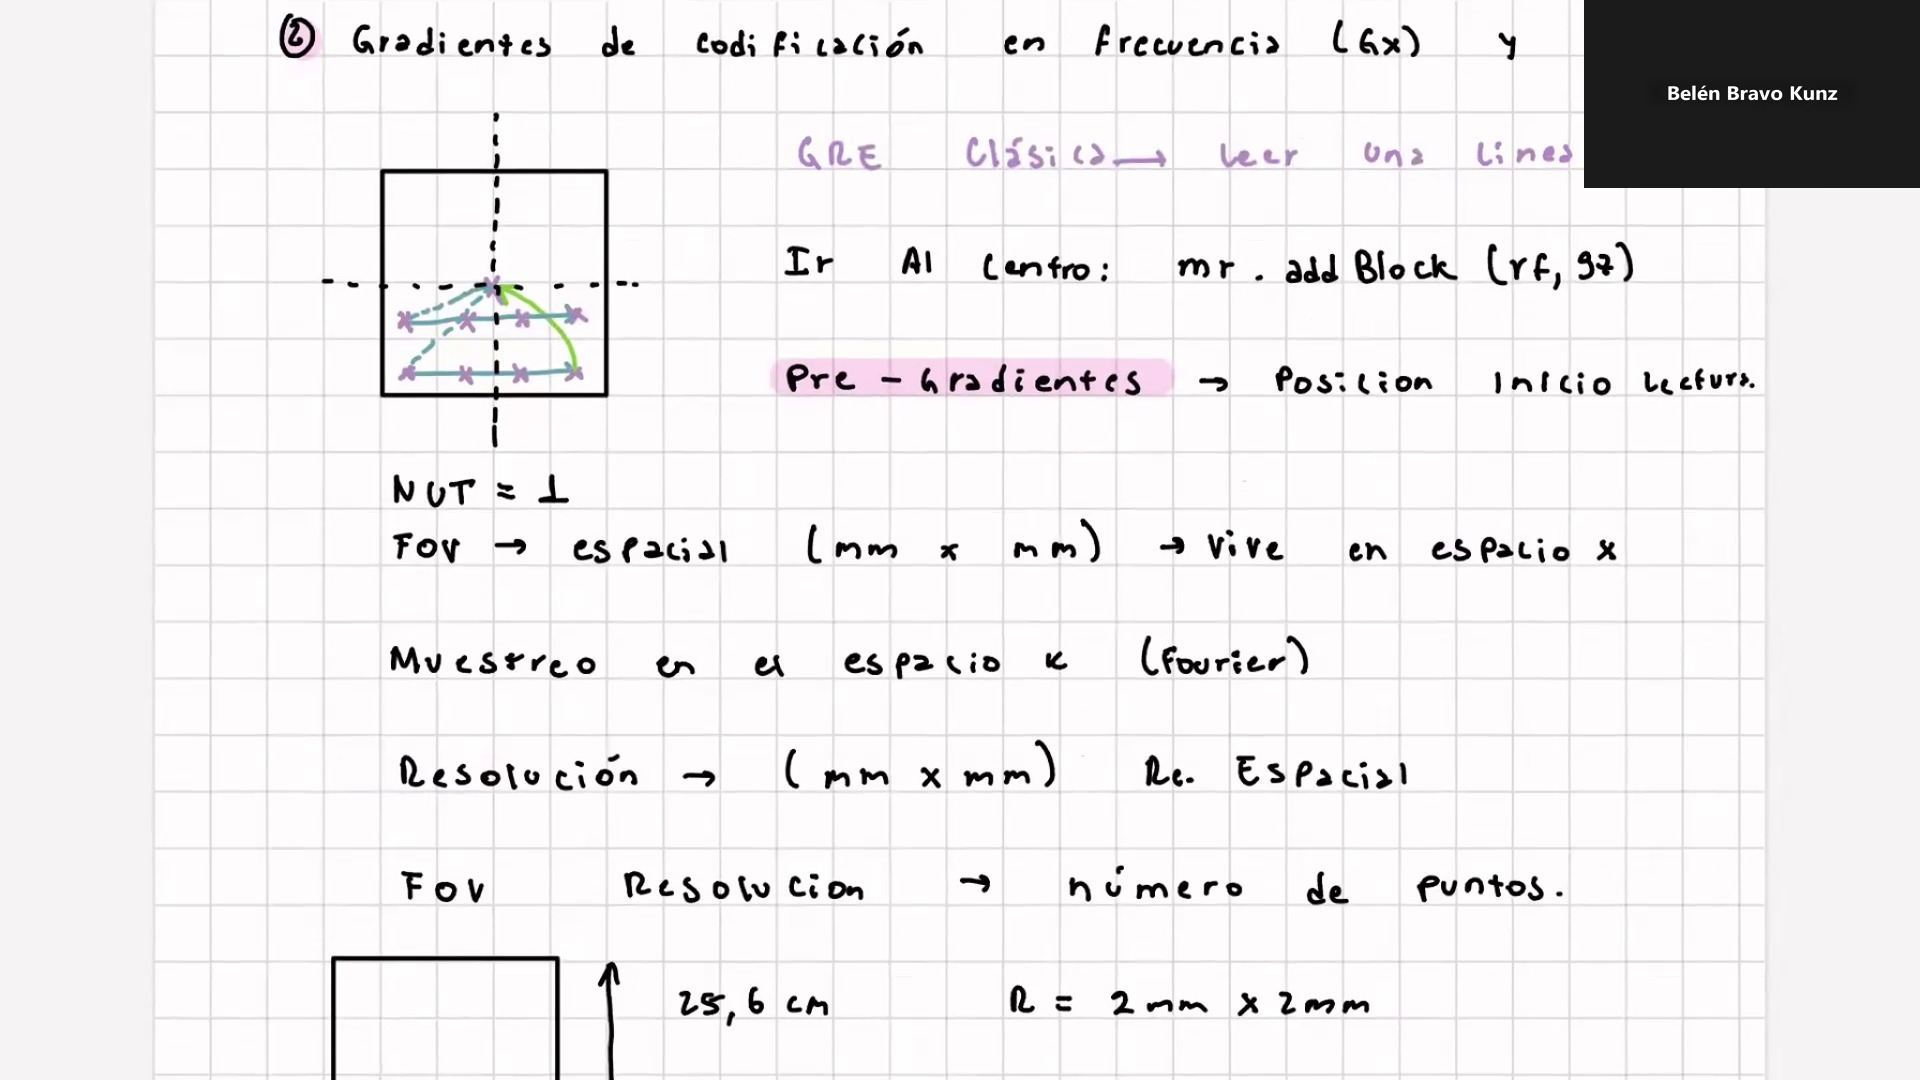 ② Gradientes de codificación en frecuencia (Gx) y
Belén Bravo Kunz
GRE Clásica → leer una línea
Ir Al Centro: mr. addBlock (rf, gz)
Pre-Gradientes → Posicion Inicio Lectura.
NUT = 1
FOV → espacial (mm x mm) → vive en espacio x
Muestreo en el espacio k (fourier)
Resolución → (mm x mm) Re. Espacial
FOV Resolucion → número de puntos.
25,6 cm R = 2mm x 2mm